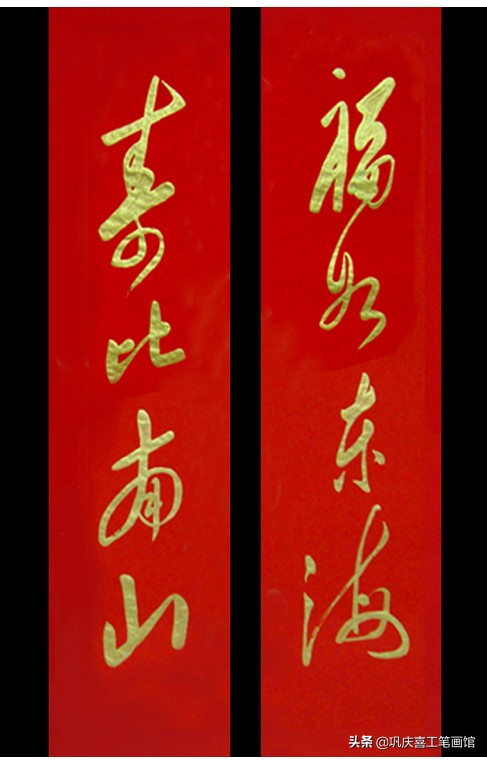 福如东海
寿比南山
头条 @巩庆喜工笔画馆